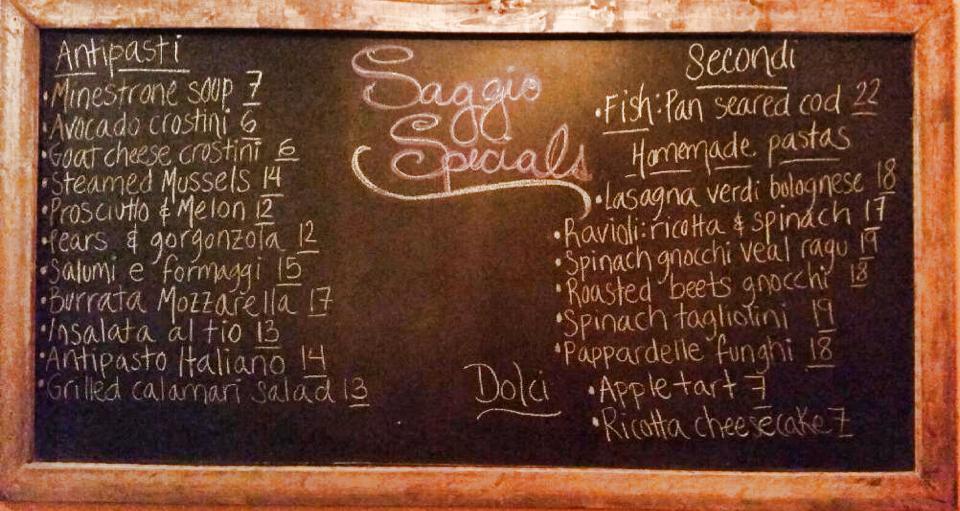 Antipasti
• Minestrone soup 7
• Avocado crostini 6
• Goat cheese crostini 6
• Steamed Mussels 14
• Prosciutto & Melon 12
• Pears & gorgonzola 12
• Salumi e formaggi 15
• Burrata Mozzarella 17
• Insalata al tio 13
• Antipasto Italiano 14
• Grilled calamari salad 13
Saggio
Specials
Secondi
• Fish: Pan seared cod 22
Homemade pastas
• Lasagna verdi bolognese 18
• Ravioli: ricotta & spinach 17
• Spinach gnocchi veal ragu 19
• Roasted beets gnocchi 18
• Spinach tagliolini 19
• Pappardelle funghi 18
Dolci
• Apple tart 7
• Ricotta cheesecake 7